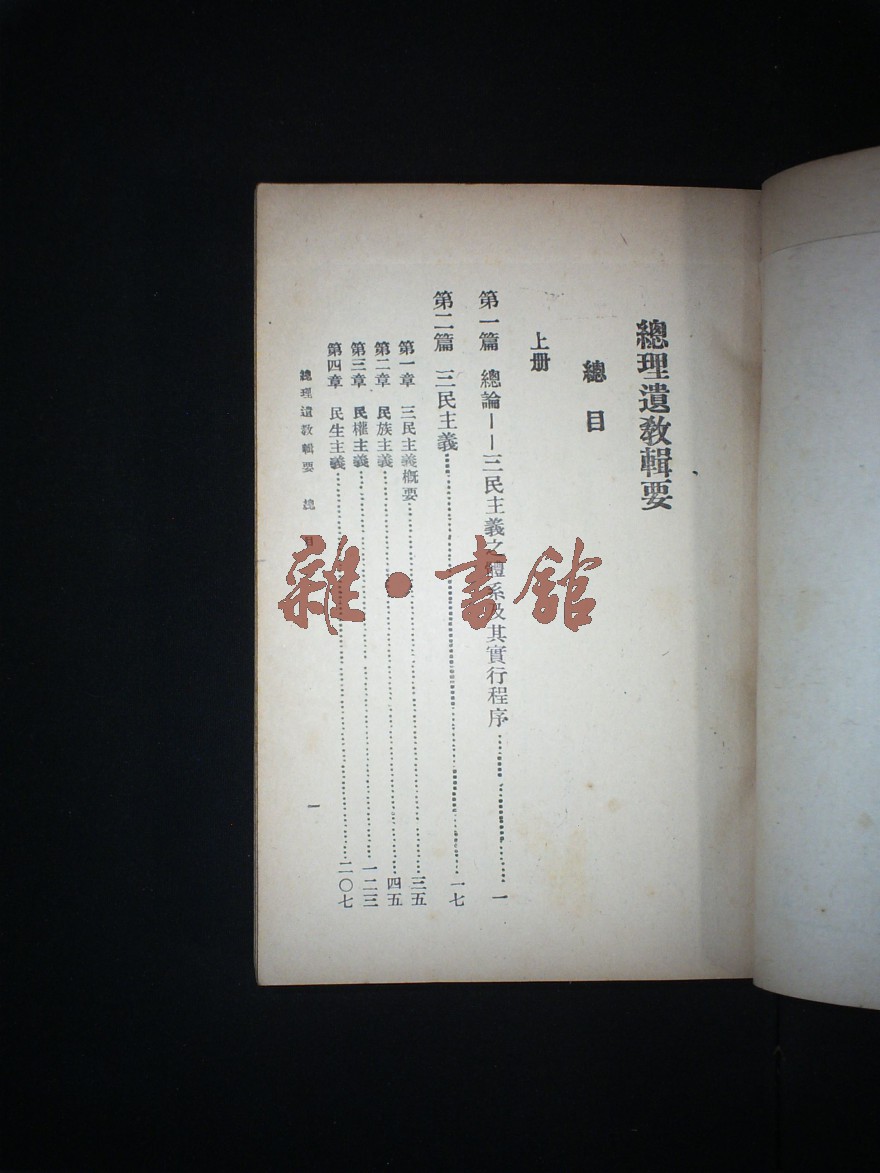 總理遺教輯要
總目
上册
第一篇 總論——三民主義之體系及其實行程序 一
第二篇 三民主義 一七
第一章 三民主義概要 三五
第二章 民族主義 四五
第三章 民權主義 一二三
第四章 民生主義 二〇七
總理遺教輯要 總目 一
雜·書館